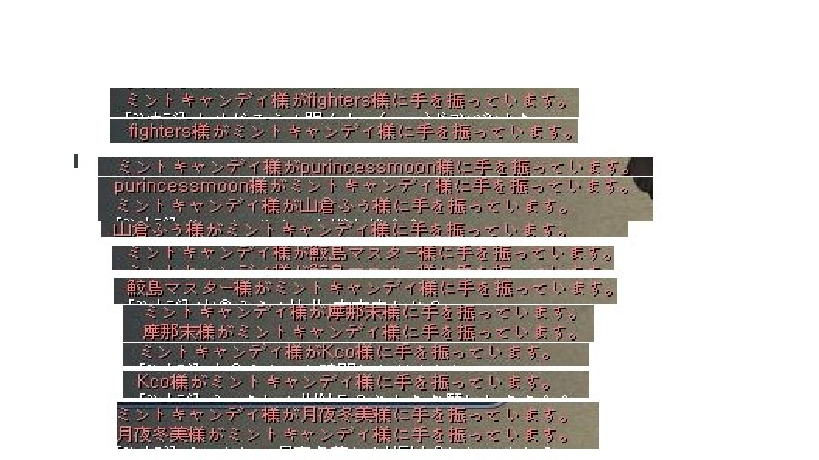 ミントキャンディ様がfighters様に手を振っています。
fighters様がミントキャンディ様に手を振っています。
ミントキャンディ様がpurincessmoon様に手を振っています。
purincessmoon様がミントキャンディ様に手を振っています。
ミントキャンディ様が山倉ふう様に手を振っています。
山倉ふう様がミントキャンディ様に手を振っています。
ミントキャンディ様が鮫島マスター様に手を振っています。
鮫島マスター様がミントキャンディ様に手を振っています。
ミントキャンディ様が摩那末様に手を振っています。
摩那末様がミントキャンディ様に手を振っています。
ミントキャンディ様がKco様に手を振っています。
Kco様がミントキャンディ様に手を振っています。
ミントキャンディ様が月夜冬美様に手を振っています。
月夜冬美様がミントキャンディ様に手を振っています。